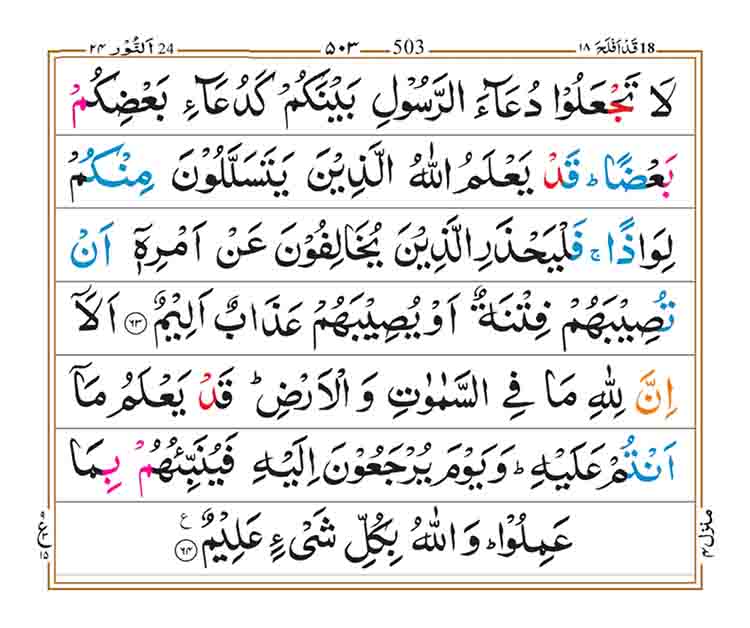 18 قَدْ اَفْلَحَ ۱۸ 503 ۵۰۳ 24 اَلنُّوْر ۲۴
لَا تَجْعَلُوْا دُعَآءَ الرَّسُوْلِ بَيْنَكُمْ كَدُعَآءِ بَعْضِكُمْ
بَعْضًا ؕ قَدْ يَعْلَمُ اللّٰهُ الَّذِيْنَ يَتَسَلَّلُوْنَ مِنْكُمْ
لِوَاذًا ۚ فَلْيَحْذَرِ الَّذِيْنَ يُخَالِفُوْنَ عَنْ اَمْرِهٖۤ اَنْ
تُصِيْبَهُمْ فِتْنَةٌ اَوْ يُصِيْبَهُمْ عَذَابٌ اَلِيْمٌ ﴿۶۳﴾ اَلَاۤ
اِنَّ لِلّٰهِ مَا فِي السَّمٰوٰتِ وَ الْاَرْضِ ؕ قَدْ يَعْلَمُ مَاۤ
اَنْتُمْ عَلَيْهِ ؕ وَ يَوْمَ يُرْجَعُوْنَ اِلَيْهِ فَيُنَبِّئُهُمْ بِمَا
عَمِلُوْا ؕ وَ اللّٰهُ بِكُلِّ شَيْءٍ عَلِيْمٌ ﴿۶۴﴾ ع
منزل ۴
ع ۱۵